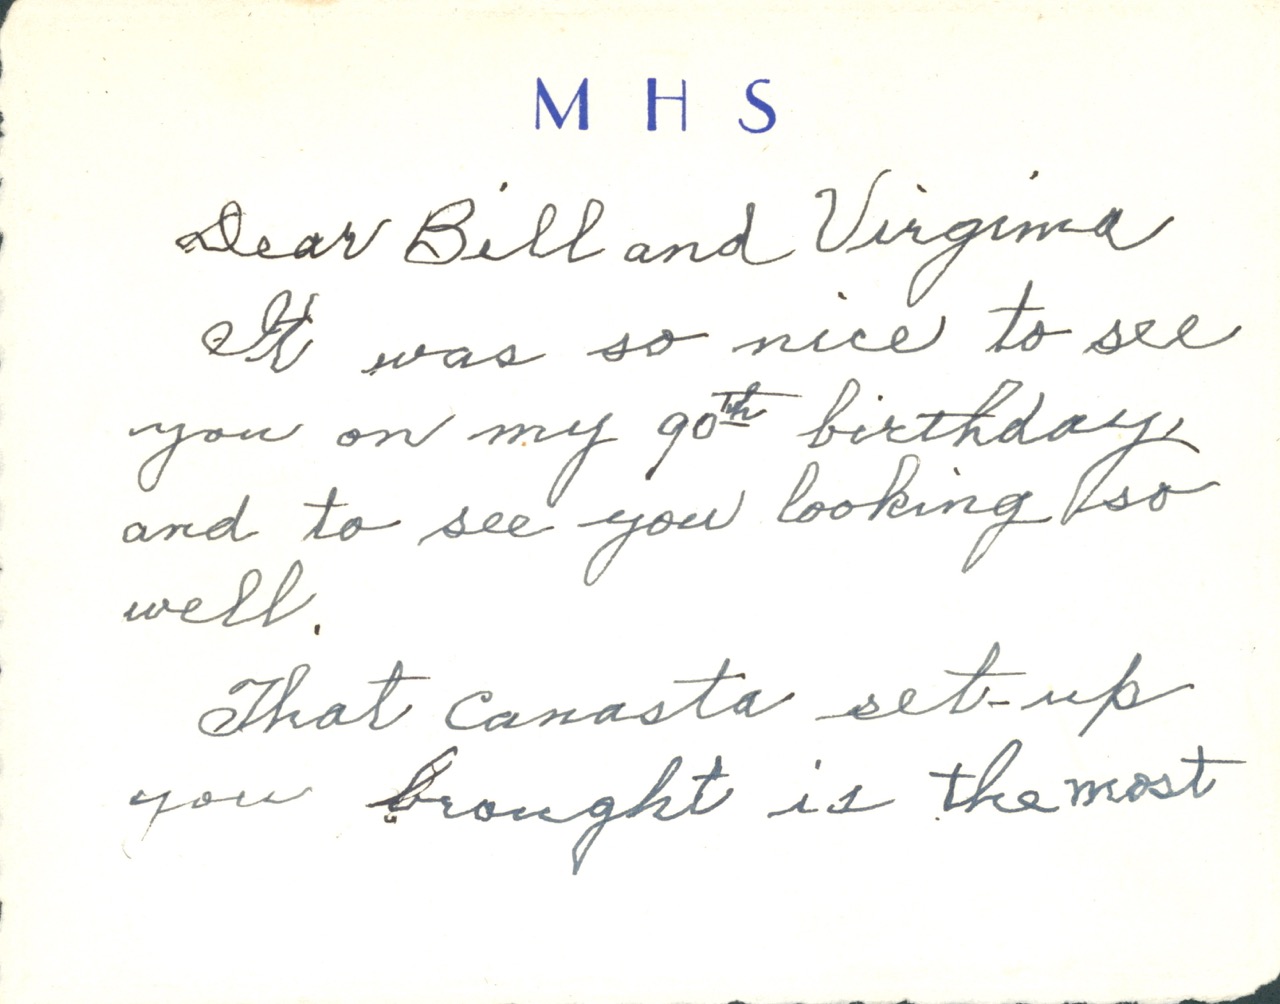 M H S
Dear Bill and Virginia
It was so nice to see
you on my 90th birthday,
and to see you looking so
well.
That canasta set-up
you brought is the most